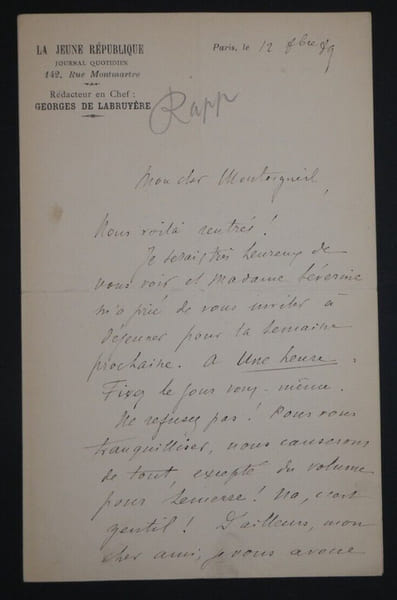 LA JEUNE RÉPUBLIQUE
JOURNAL QUOTIDIEN
142, Rue Montmartre
Rédacteur en Chef :
GEORGES DE LABRUYÈRE
Paris, le 12 8bre 89
Rapp
Mon cher Montorgueil
Nous voilà rentrés !
Je serais très heureux de
vous voir et Madame Séverine
m'a prié de vous inviter à
déjeuner pour la semaine
prochaine. A Une heure.
Fixez le jour vous-même.
Ne refusez pas ! Pour vous
tranquilliser, nous causerons
de tout, excepté du volume
pour Lemerre ! Na, c'est
gentil ! D'ailleurs, mon
cher ami, je vous avoue